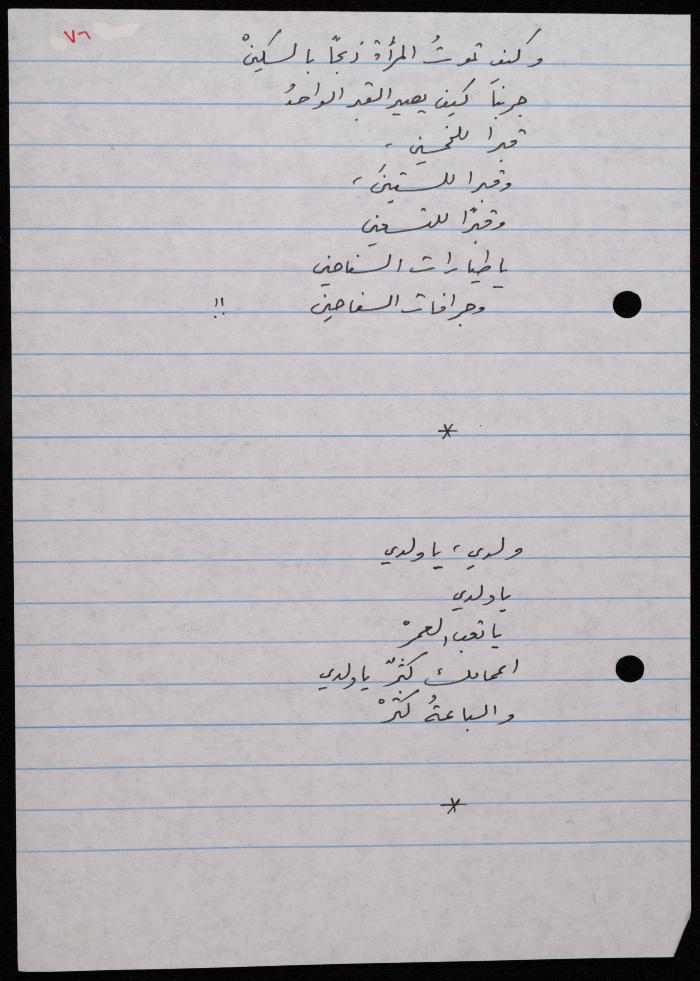 ٧٦
وكيف تموتُ المرأة ذبحًا بالسكينْ
جربنا كيف يصير القبر الواحدُ
قبرا للخمسين ،
وقبرا للستينَ ،
وقبرًا للتسعين
يا طيارات السفاحين
وجرافات السفاحين !!
*
ولدي ، يا ولدي
يا ولدي
يا تعب العمرْ
اعمامك كثرٌ يا ولدي
والباعةُ كثرْ
*